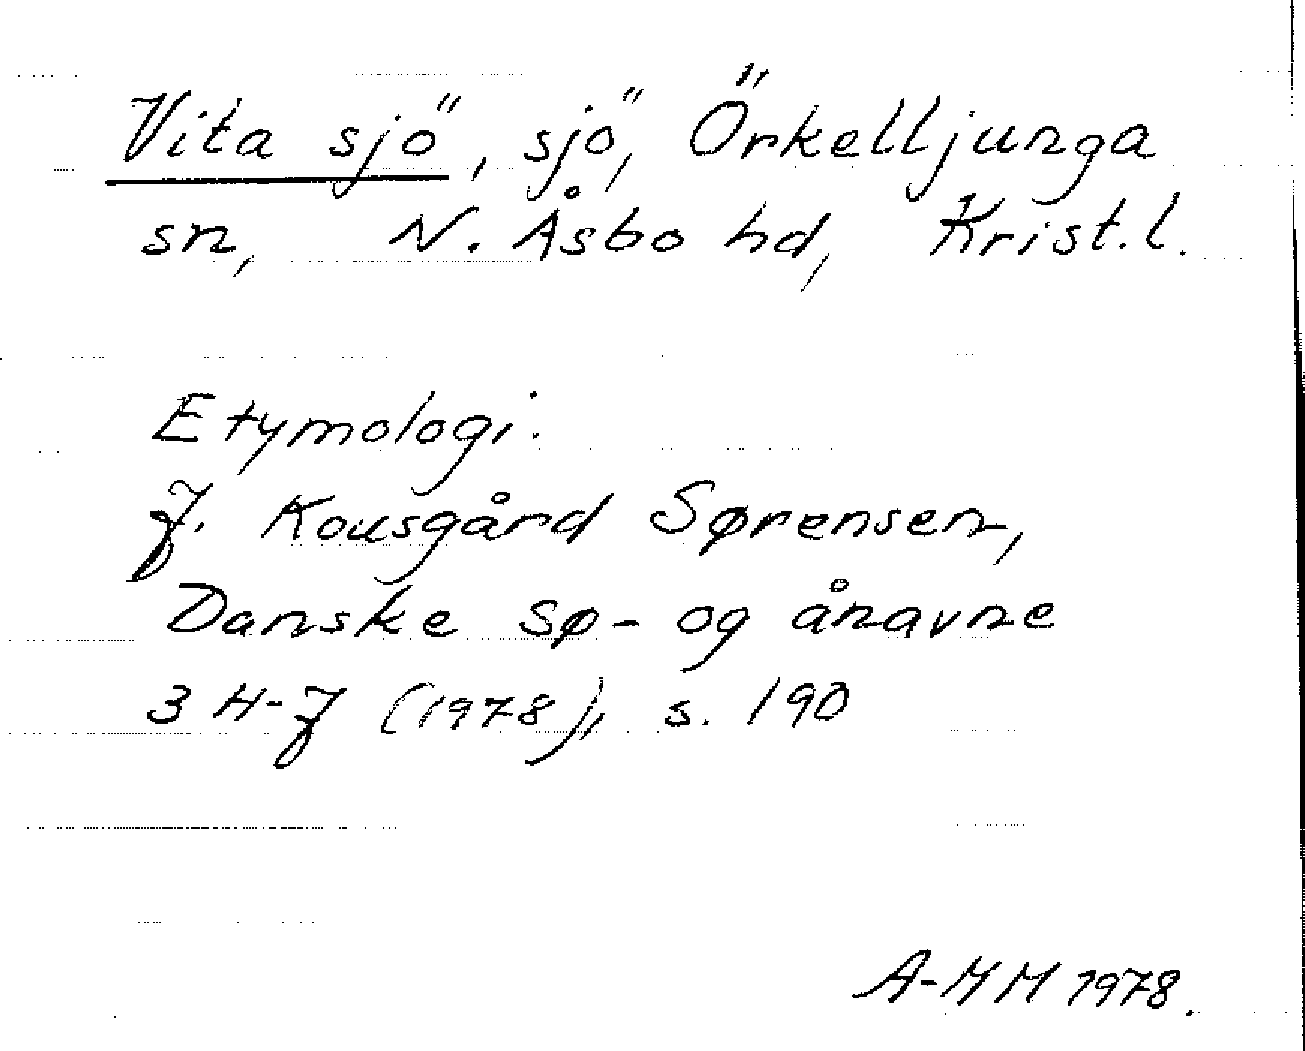 Vita sjö, sjö, Örkelljunga
sn, N. Åsbo hd, Krist.l.
Etymologi:
J. Kousgård Sørensen,
Danske sø- og ånavne
3 H-J (1978), s. 190
A-MM 1978.